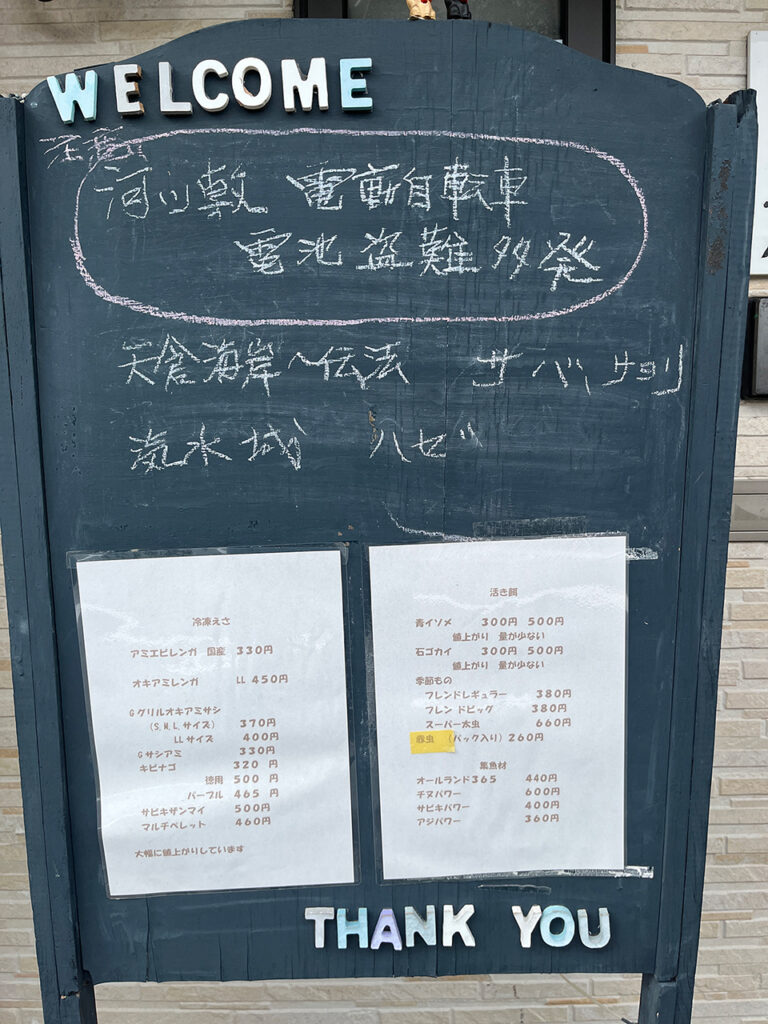 WELCOME
注意!
河川敷 電動自転車
電池盗難多発
矢倉海岸〜伝法 サバ、サヨリ
汽水城 ハゼ
冷凍えさ
アミエビレンガ 国産 330円
オキアミレンガ LL 450円
Gグリルオキアミサシ
(S,M,L,サイズ) 370円
LLサイズ 400円
Gサシアミ 330円
キビナゴ 320 円
徳用 500 円
パープル 465 円
サビキザンマイ 500円
マルチペレット 460円
大幅に値上がりしています
活き餌
青イソメ 300円 500円
値上がり 量が少ない
石ゴカイ 300円 500円
値上がり 量が少ない
季節もの
フレンドレギュラー 380円
フレン ドビッグ 380円
スーパー太虫 660円
(パック入り) 260円
集魚材
オールランド365 440円
チヌパワー 600円
サビキパワー 400円
アジパワー 360円
THANK YOU